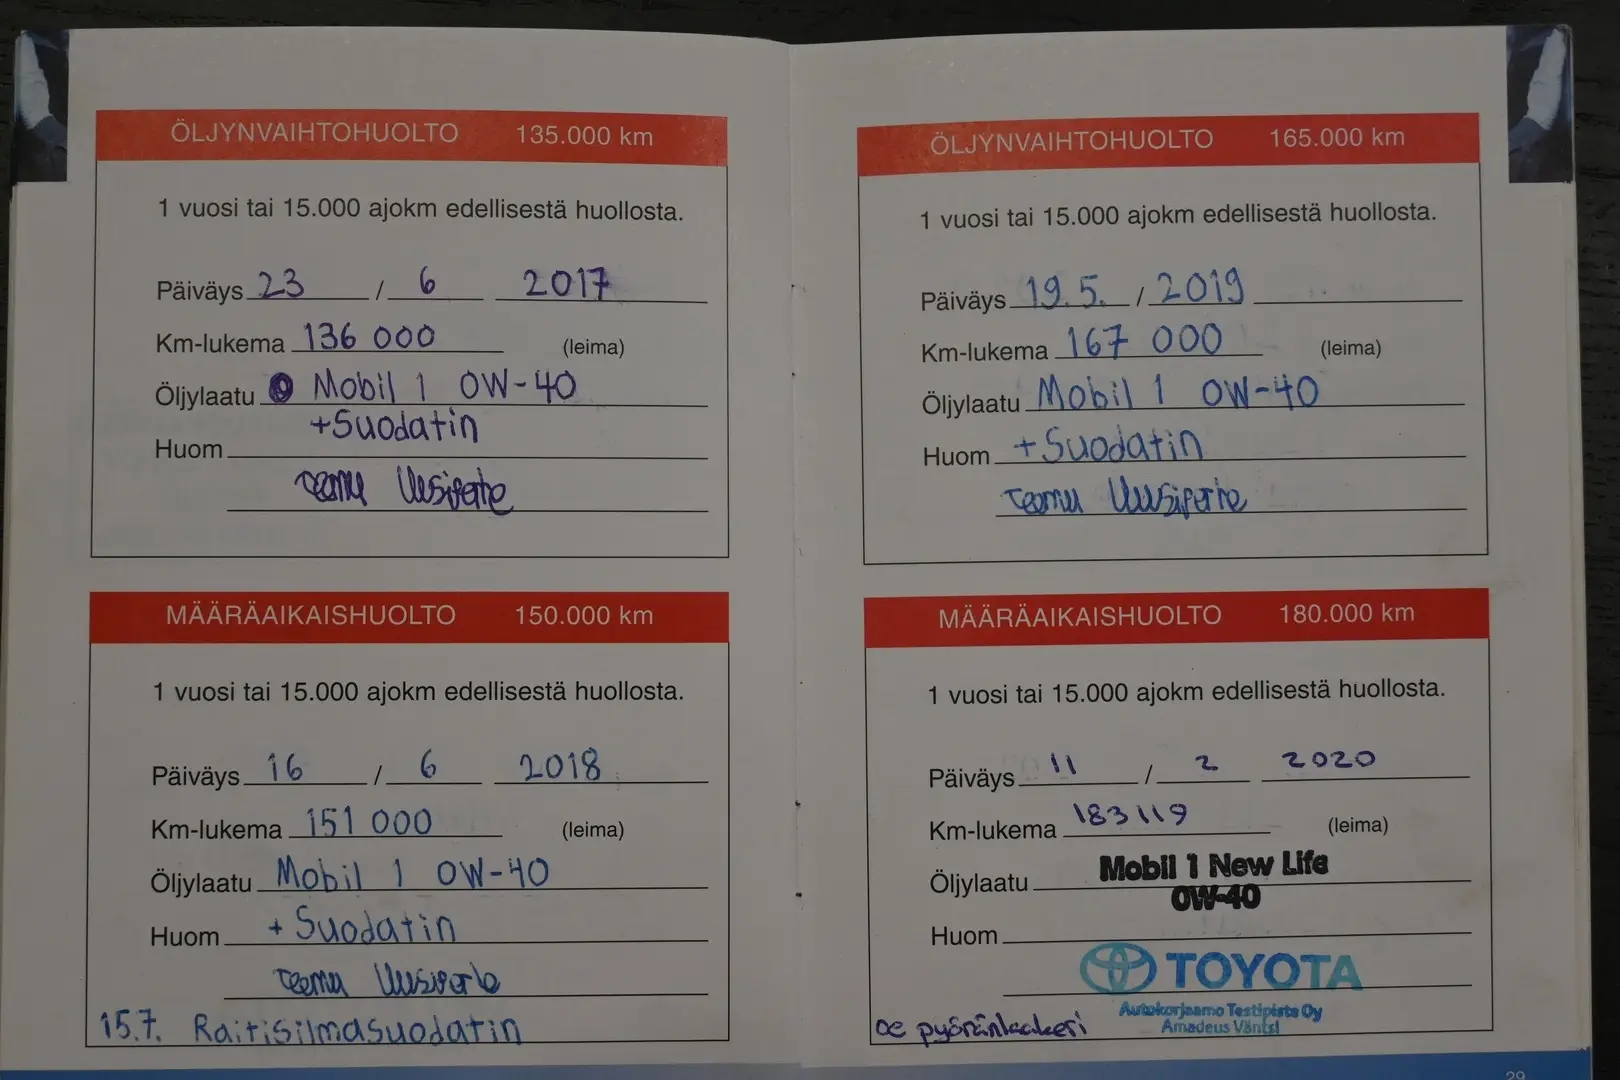 ÖLJYNVAIHTOHUOLTO 135.000 km
1 vuosi tai 15.000 ajokm edellisestä huollosta.
Päiväys 23 / 6 2017
Km-lukema 136 000 (leima)
Öljylaatu Mobil 1 0W-40
+Suodatin
Huom
Teemu
MÄÄRÄAIKAISHUOLTO 150.000 km
1 vuosi tai 15.000 ajokm edellisestä huollosta.
Päiväys 16 / 6 2018
Km-lukema 151 000 (leima)
Öljylaatu Mobil 1 0W-40
Huom + Suodatin
Teemu
15.7. Raitisilmasuodatin
ÖLJYNVAIHTOHUOLTO 165.000 km
1 vuosi tai 15.000 ajokm edellisestä huollosta.
Päiväys 19.5. / 2019
Km-lukema 167 000 (leima)
Öljylaatu Mobil 1 0W-40
Huom + Suodatin
Teemu
MÄÄRÄAIKAISHUOLTO 180.000 km
1 vuosi tai 15.000 ajokm edellisestä huollosta.
Päiväys 11 / 2 2020
Km-lukema 183119 (leima)
Öljylaatu Mobil 1 New Life
0W-40
Huom
TOYOTA
Autokorjaamo Testipiste Oy
Amadeus Väntsi
oe pyöränlaakeri
29